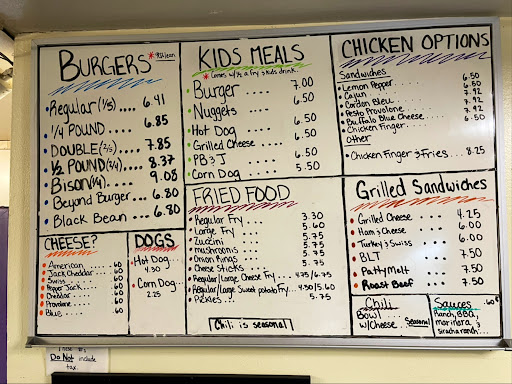 BURGERS *93% lean
Regular (1/5).... 6.41
1/4 POUND..... 6.85
DOUBLE (2/5).... 7.85
1/2 POUND (2/4).... 8.37
Bison (1/4).... 9.08
Beyond Burger... 6.80
Black Bean.... 6.80
CHEESE?
American.... .60
Jack Cheddar .60
Swiss.... .60
Pepper Jack .60
Cheddar.... .60
Provolone.... .60
Blue.... .60
DOGS
Hot Dog....
4.30
Corn Dog....
2.25
KIDS MEALS
*Comes w/ 1/2 a fry & kids drink.
Burger .... 7.00
Nuggets .... 6.50
Hot Dog .... 6.50
Grilled Cheese .... 6.50
PB & J .... 6.50
Corn Dog .... 5.50
FRIED FOOD
Regular Fry.... 3.30
Large Fry.... 5.60
Zuccini.... 5.75
mushrooms.... 5.75
Onion Rings.... 5.75
Cheese Sticks.... 5.75
Regular/Large Cheese Fry... 4.75/6.75
Regular/Large Sweet potato Fry... 4.30/5.60
Pickles.... 5.75
Chili is seasonal
CHICKEN OPTIONS
Sandwiches
Lemon Pepper.... 6.50
Cajun.... 6.50
Cordon Bleu.... 7.92
Pesto Provolone.... 7.92
Buffalo Blue Cheese.... 7.92
Chicken Finger.... 6.50
Other
Chicken Finger & Fries.... 8.25
Grilled Sandwiches
Grilled Cheese .... 4.25
Ham & Cheese .... 6.00
Turkey & Swiss .... 6.00
BLT .... 7.50
Patty Melt .... 7.50
Roast Beef .... 7.50
Chili
Bowl....
w/Cheese.... Seasonal
Sauces .60¢
Ranch, BBQ,
marinara &
siracha ranch...
Do Not include
tax.